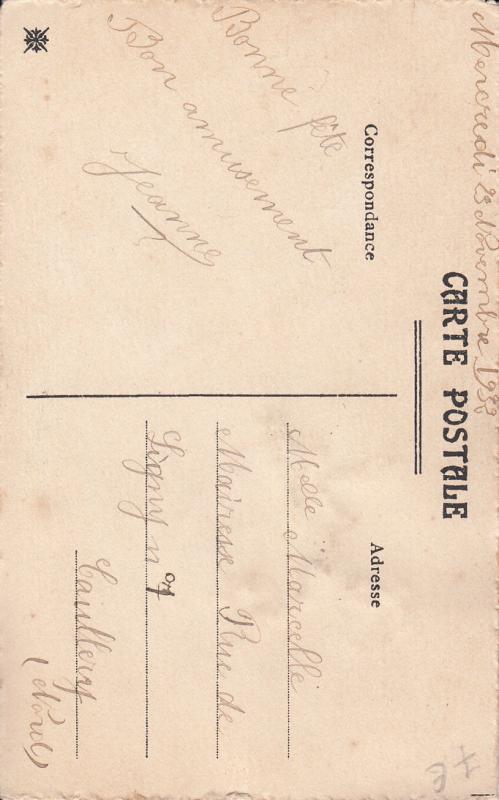 Mercredi 23 Novembre 1938
CARTE POSTALE
Correspondance
Bonne fête
Bon amusement
Jeanne
Adresse
Melle Marcelle
Mairesse Rue de
Ligny n
Caullery
(Nord)